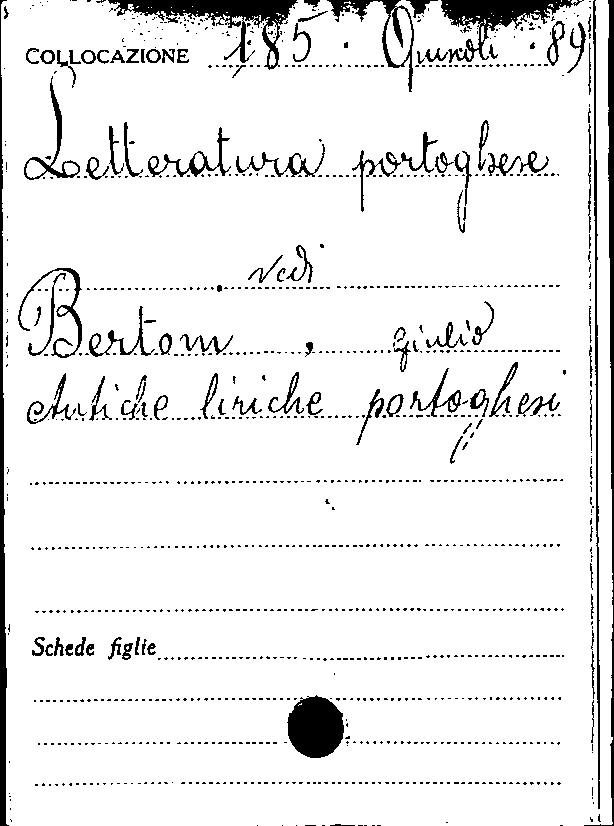 COLLOCAZIONE 185 · Quiroli · 89
Letteratura portoghese
vedi
Bertoni, Giulio
Antiche liriche portoghesi
Schede figlie